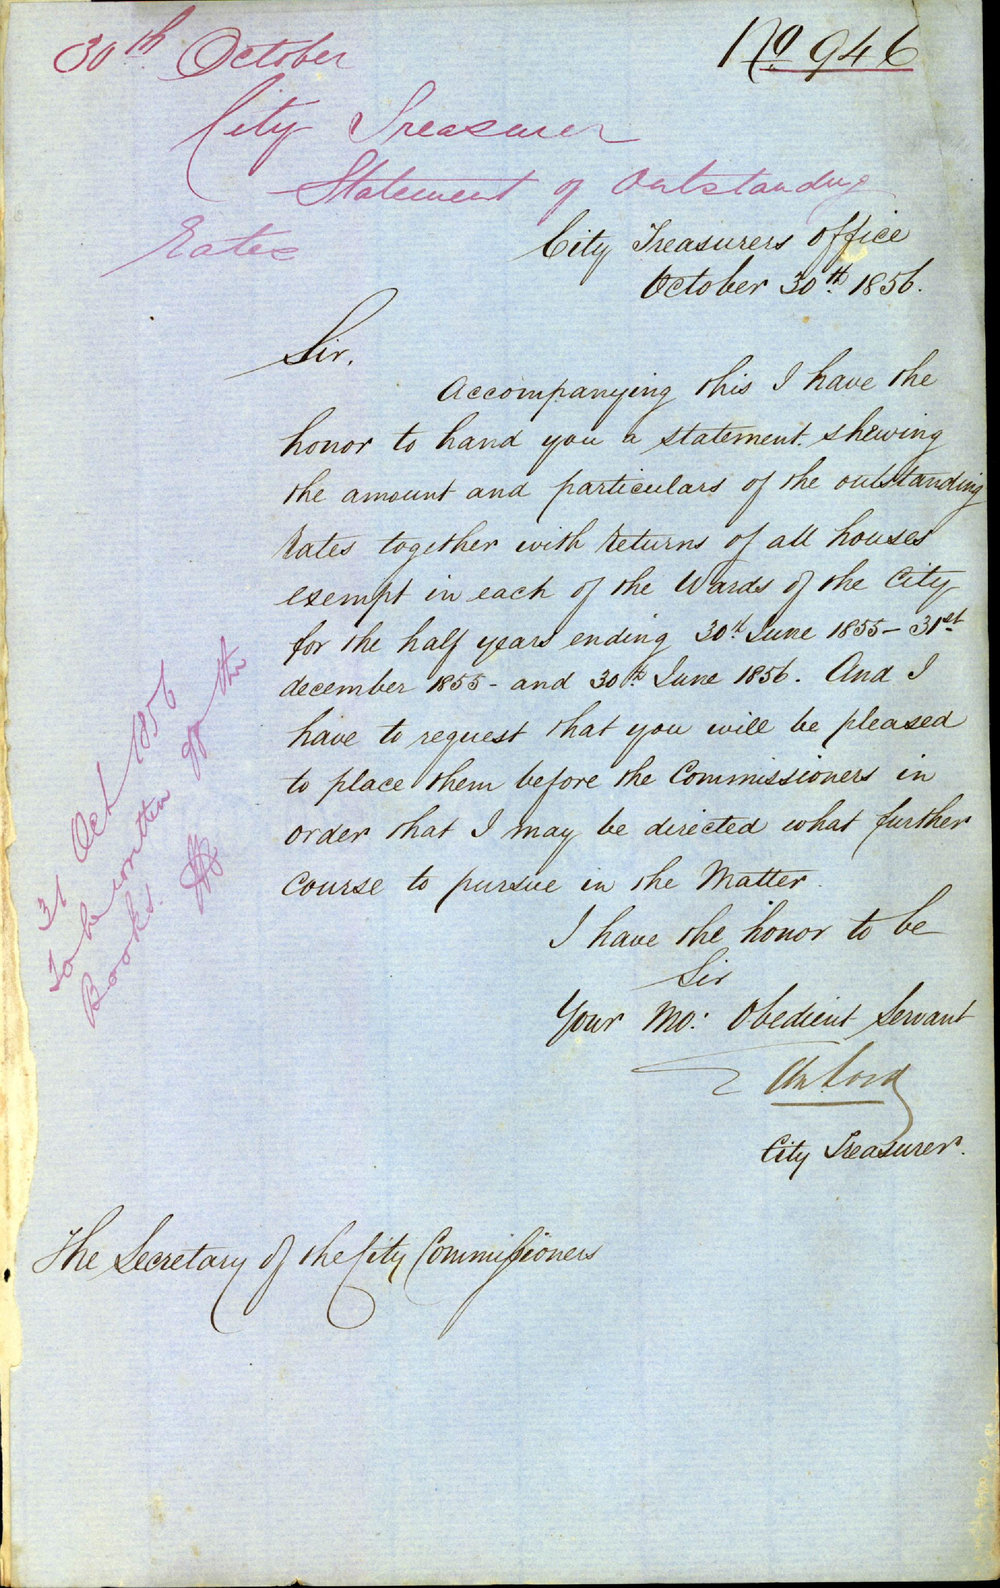 30th October
No 946
City Treasurer
Statement of Outstanding
Rates
City Treasurers Office
October 30th 1856.
Sir,
Accompanying this I have the
honor to hand you a statement shewing
the amount and particulars of the outstanding
Rates together with Returns of all houses
exempt in each of the Wards of the City
for the half years ending 30th June 1855 - 31st
december 1855 - and 30th June 1856. And I
have to request that you will be pleased
to place them before the Commissioners in
order that I may be directed what further
course to pursue in the Matter.
I have the honor to be
Sir
Your Mo: Obedient Servant
Lord
City Treasurer.
31 Oct 1856
To be written off the
Books.
The Secretary of the City Commissioners